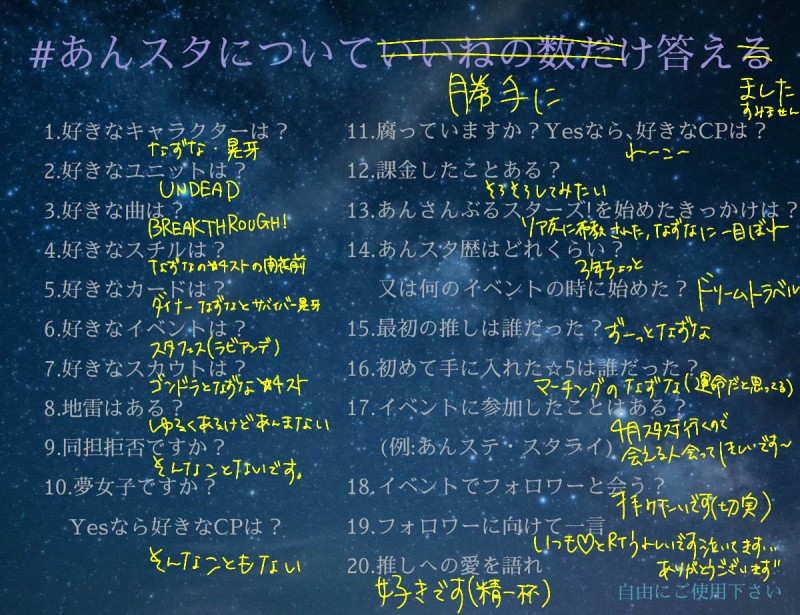 #あんスタについていいねの数だけ答える
勝手に
ました
すみません
1.好きなキャラクターは?
なずな・晃牙
2.好きなユニットは?
UNDEAD
3.好きな曲は?
BREAKTHROUGH!
4.好きなスチルは?
なずなの☆4ストの開花前
5.好きなカードは?
ダイナーなずなとサバイバー晃牙
6.好きなイベントは?
スタフェス(ラビアンデ)
7.好きなスカウトは?
ゴンドラとなずな☆4スト
8.地雷はある?
ゆるくあるけどあんまない
9.同担拒否ですか?
そんなことないです。
10.夢女子ですか?
Yesなら好きなCPは?
そんなこともない
11.腐っていますか?Yesなら、好きなCPは?
れーこー
12.課金したことある?
そろそろしてみたい
13.あんさんぶるスターズ!を始めたきっかけは?
リア友に布教された,なずなに一目ぼれ
14.あんスタ歴はどれくらい?
3年ちょっと
又は何のイベントの時に始めた?
ドリームトラベル
15.最初の推しは誰だった?
ずーっとなずな
16.初めて手に入れた☆5は誰だった?
マーチングのなずな(運命だと思ってる)
17.イベントに参加したことはある?
(例:あんステ・スタライ)
4月スタライ行くので
会える人会ってほしいです〜
18.イベントでフォロワーと会う?
オフりたいです(切実)
19.フォロワーに向けて一言
いつも♡とRTうれしいです泣いてます…
ありがとうございます!!
20.推しへの愛を語れ
好きです(精一杯)
自由にご使用下さい